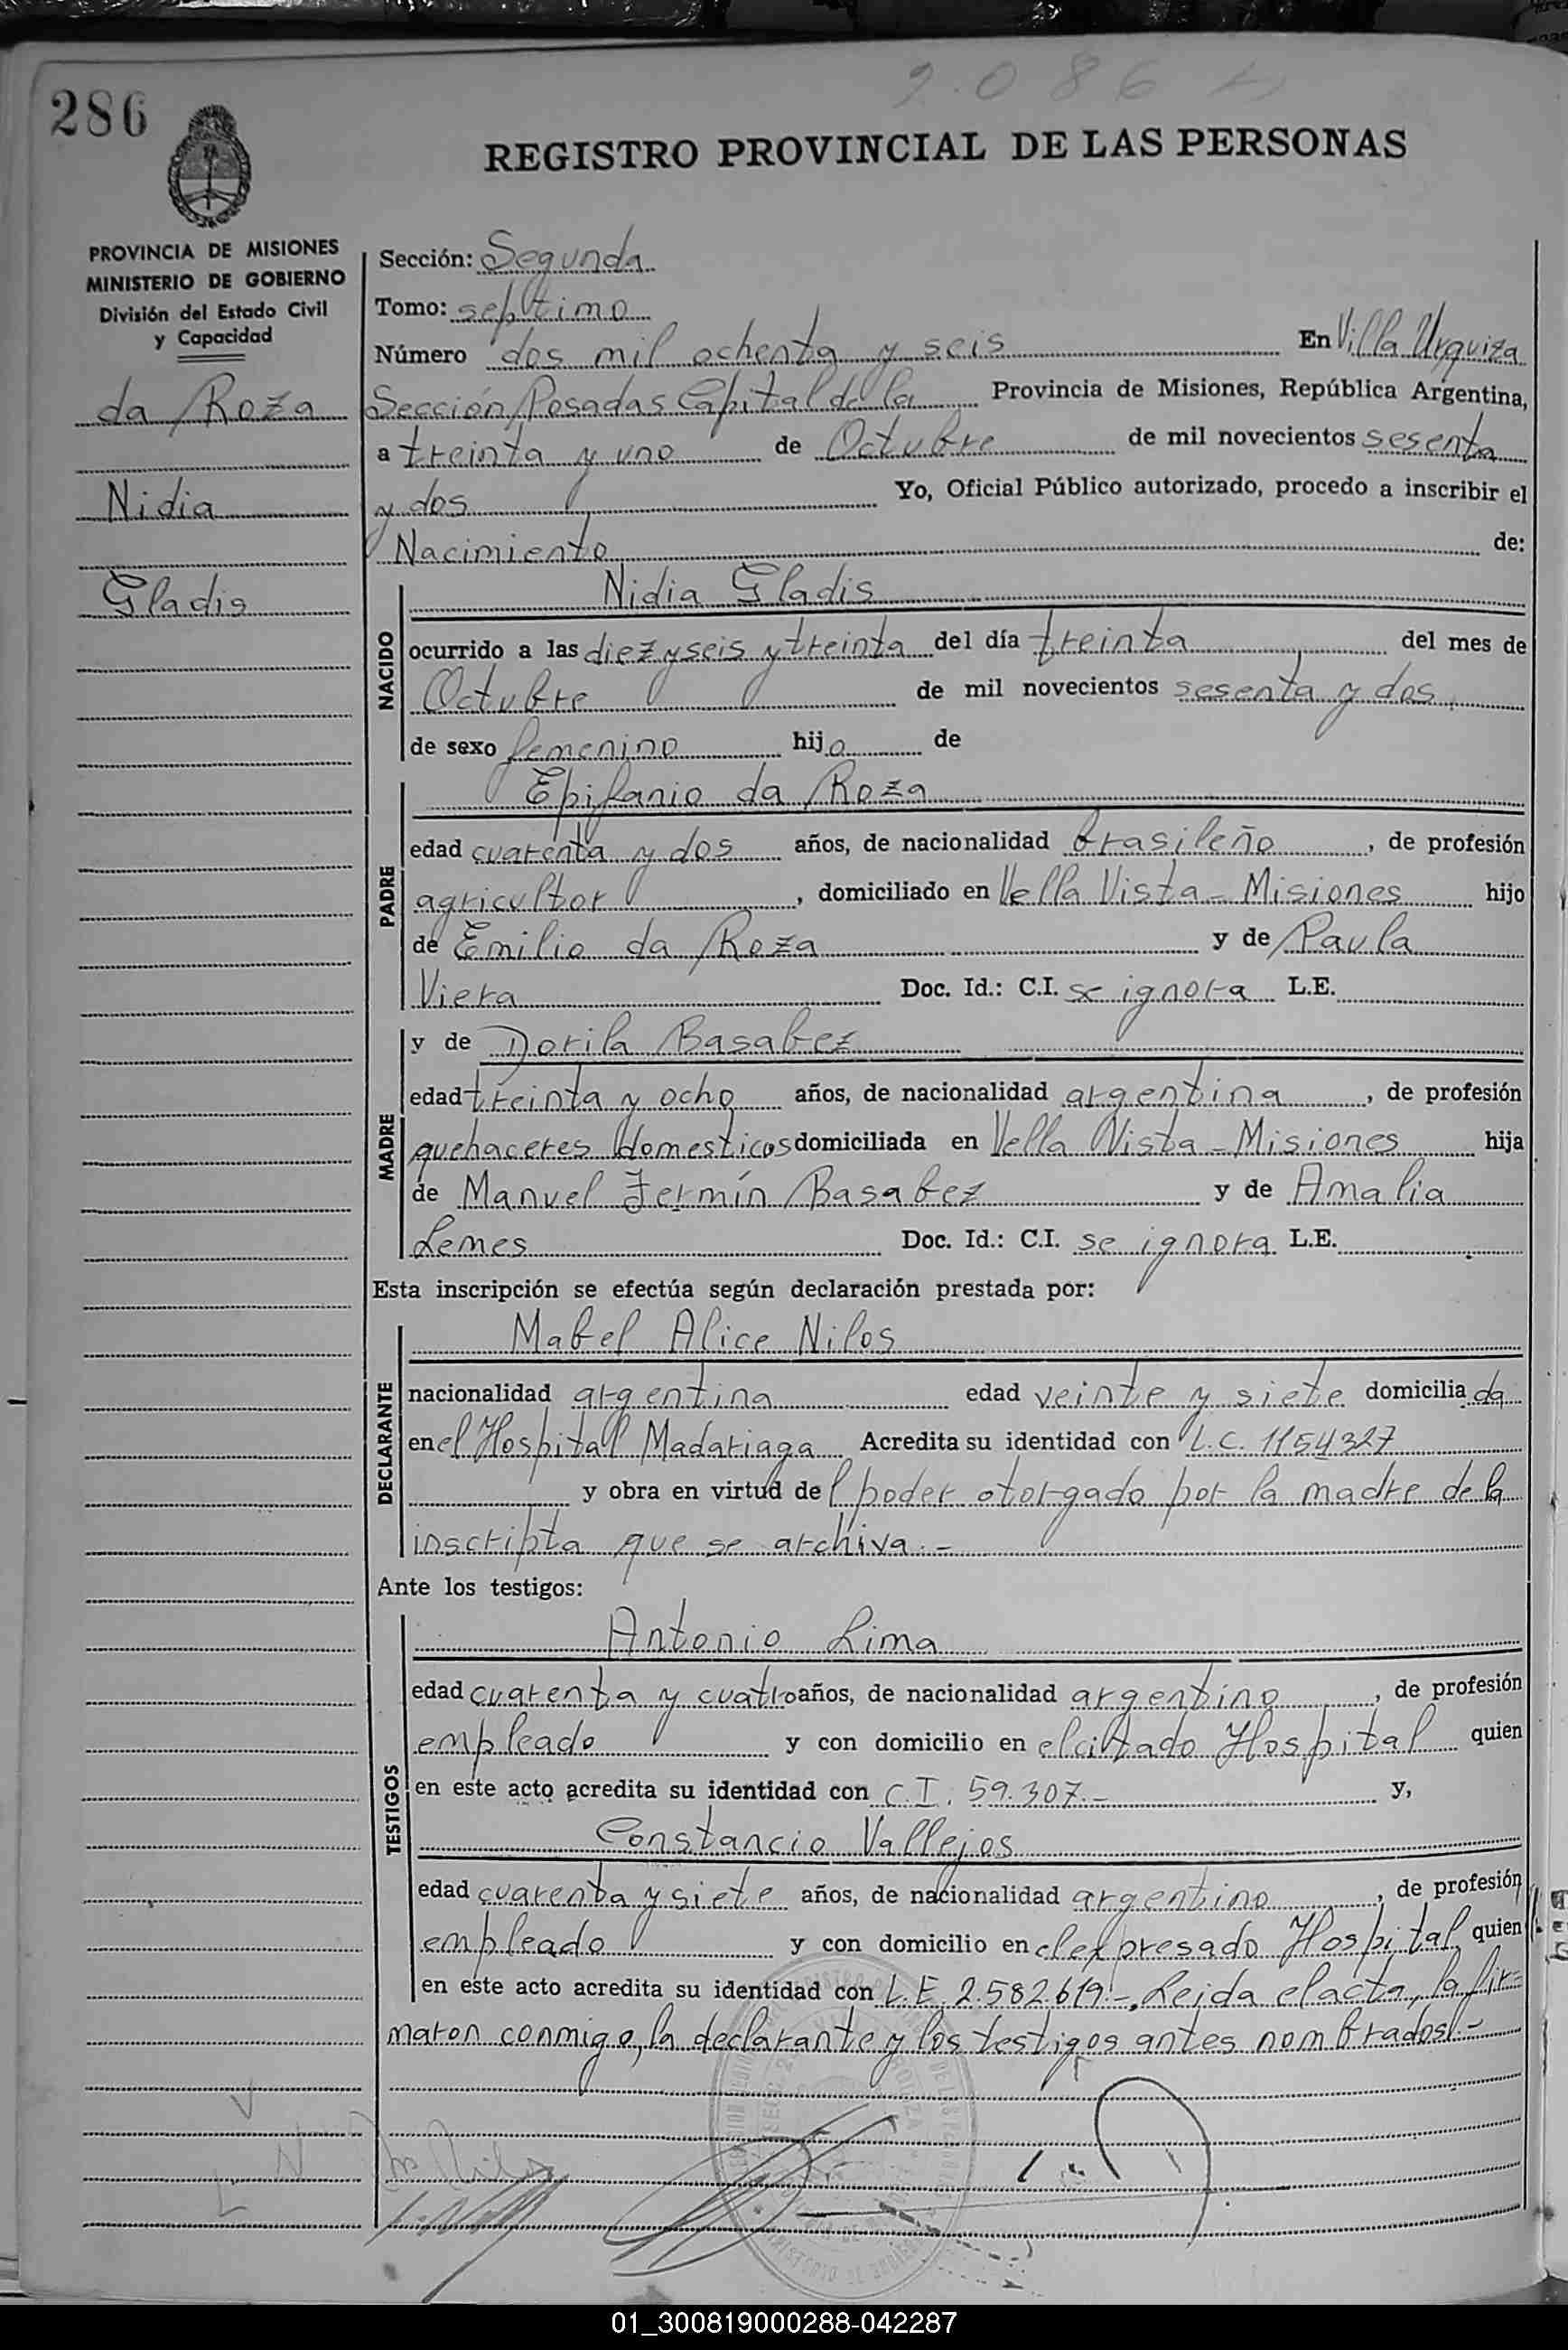 286
2.086
REGISTRO PROVINCIAL DE LAS PERSONAS
PROVINCIA DE MISIONES
MINISTERIO DE GOBIERNO
División del Estado Civil
y Capacidad
da Roza
Nidia
Gladis
Sección: Segunda
Tomo: septimo
Número dos mil ochenta y seis En Villa Urquiza
Sección Posadas Capital de la Provincia de Misiones, República Argentina,
a treinta y uno de Octubre de mil novecientos sesenta
y dos Yo, Oficial Público autorizado, procedo a inscribir el
Nacimiento de:
NACIDO
Nidia Gladis
ocurrido a las diez y seis y treinta del día treinta del mes de
Octubre de mil novecientos sesenta y dos
de sexo femenino hija de
PADRE
Epifanio da Roza
edad cuarenta y dos años, de nacionalidad brasileño, de profesión
agricultor, domiciliado en Vella Vista - Misiones hijo
de Emilio da Roza y de Paula
Viera Doc. Id.: C.I. se ignora L.E.
MADRE
y de Dorila Basabez
edad treinta y ocho años, de nacionalidad argentina, de profesión
quehaceres domesticos domiciliada en Vella Vista - Misiones hija
de Manuel Fermín Basabez y de Amalia
Lemes Doc. Id.: C.I. se ignora L.E.
Esta inscripción se efectúa según declaración prestada por:
DECLARANTE
Mabel Alice Nilos
nacionalidad argentina edad veinte y siete domiciliada
en el Hospital Madariaga Acredita su identidad con L.C. 1154327
y obra en virtud del poder otorgado por la madre de la
inscripta que se archiva.-
Ante los testigos:
TESTIGOS
Antonio Lima
edad cuarenta y cuatro años, de nacionalidad argentino, de profesión
empleado y con domicilio en el citado Hospital quien
en este acto acredita su identidad con C.I. 59.307.- y,
Constancio Vallejos
edad cuarenta y siete años, de nacionalidad argentino, de profesión
empleado y con domicilio en el expresado Hospital quien
en este acto acredita su identidad con L.E. 2.582.619.-, Leida el acta, la fir=
maron conmigo, la declarante y los testigos antes nombrados.-
01_300819000288-042287